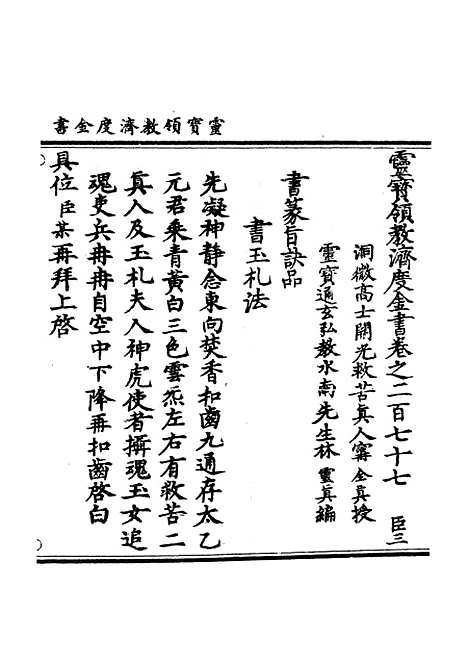 靈寶領教濟度金書
靈寶領教濟度金書卷之二百七十七 臣三
洞微高士開光救苦真人寗全真授
靈寶通玄弘教水南先生林靈真編
書篆旨訣品
書玉札法
先凝神静念東向焚香扣齒九通存太乙
元君乘青黃白三色雲炁左右有救苦二
真人及玉札夫人神虎使者攝魂玉女追
魂吏兵冉冉自空中下降再扣齒啓白
具位臣某再拜上啓